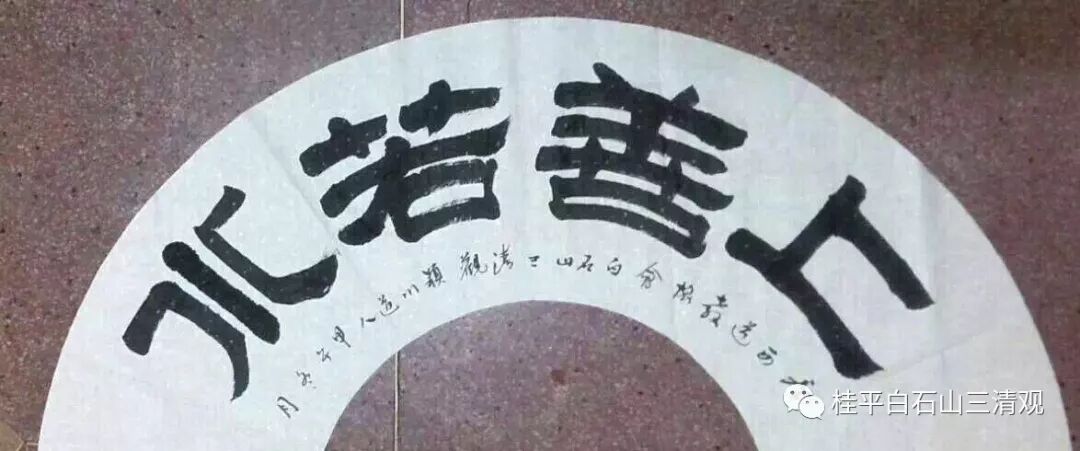 上善若水
西道教會白石山三清觀穎川道人甲午冬月
桂平白石山三清观